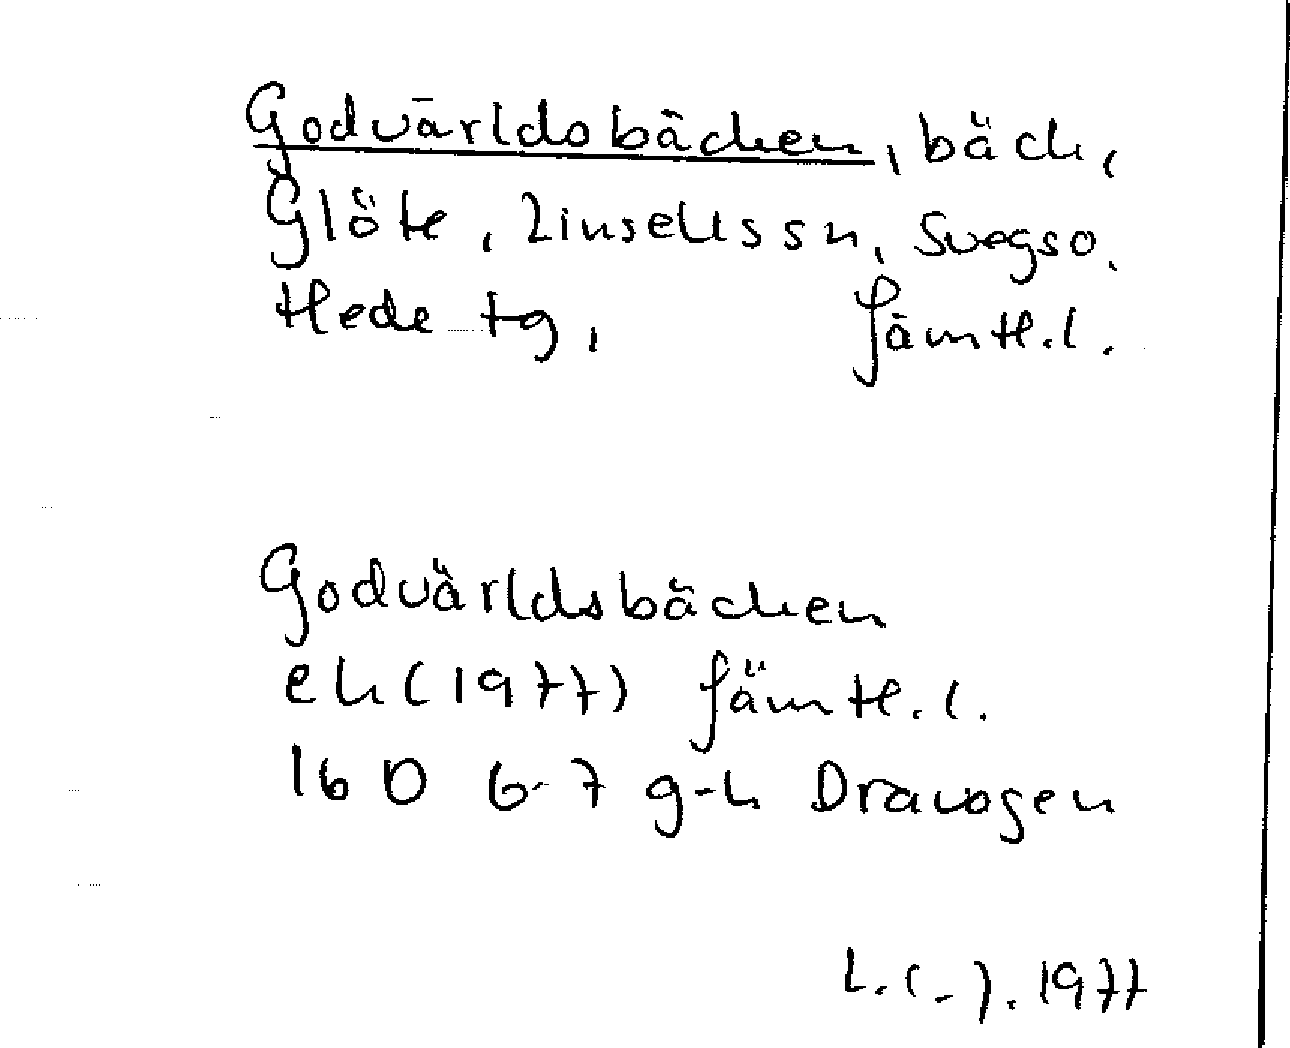 Godvärldsbäcken, bäck,
Glöte, Linsells sn, Svegs o.
Hede tg, Jämtl. l.
Godvärldsbäcken
ek (1977) Jämtl. l.
16 D 6-7 g-h Dravagen
L. (-). 1977